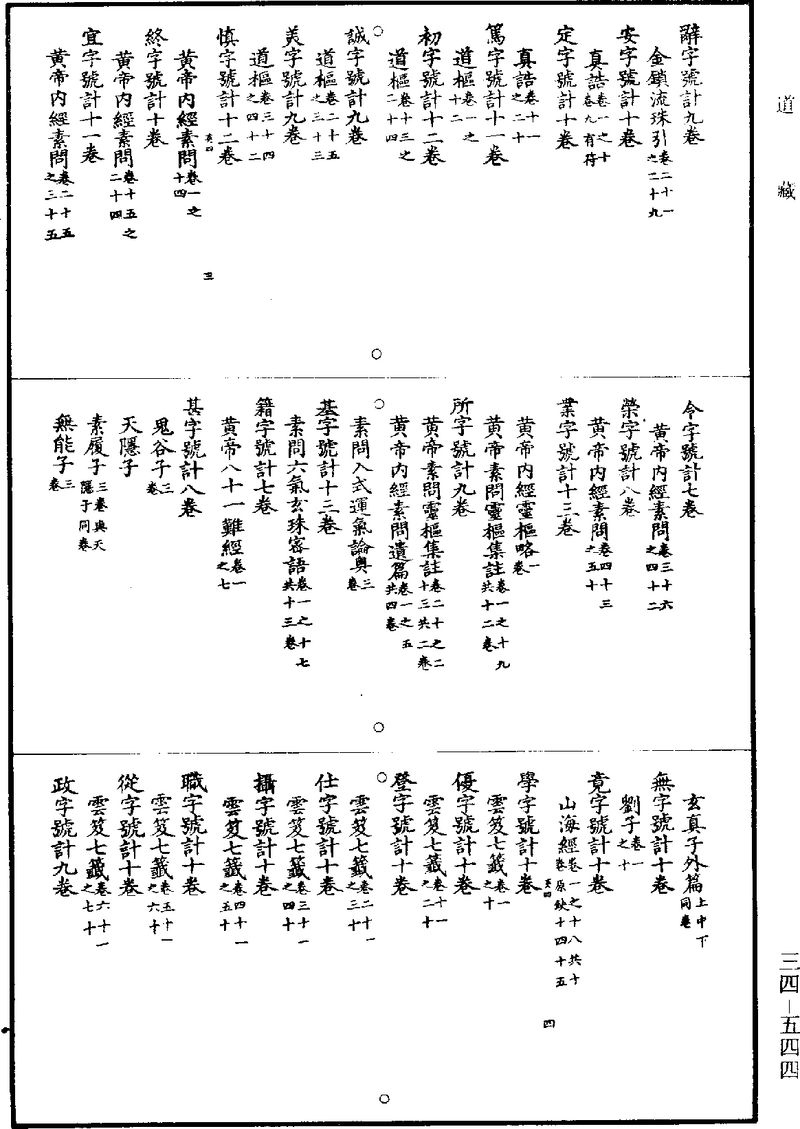 道藏
辭字號計九卷
金鎖流珠引卷二十一之二十九
安字號計十卷
真誥卷一之十卷九有符
定字號計十卷
真誥卷十一之二十
篤字號計十一卷
道樞卷一之十二
初字號計十二卷
道樞卷十三之二十四
誠字號計九卷
道樞卷二十五之三十三
美字號計九卷
道樞卷三十四之四十二
慎字號計十二卷
英四 三
黃帝內經素問卷一之十四
終字號計十卷
黃帝內經素問卷十五之二十四
宜字號計十一卷
黃帝內經素問卷二十五之三十五
令字號計七卷
黃帝內經素問卷三十六之四十二
榮字號計八卷
黃帝內經素問卷四十三之五十
業字號計十三卷
黃帝內經靈樞略一卷
黃帝素問靈樞集註卷一之十九共十二卷
所字號計九卷
黃帝素問靈樞集註卷二十之二十三共二卷
黃帝內經素問遺篇卷一之五共四卷
素問入式運氣論奧三卷
基字號計十三卷
素問六氣玄珠密語卷一之十七共十三卷
籍字號計七卷
黃帝八十一難經卷一之七
甚字號計八卷
鬼谷子三卷
天隱子
素履子三卷與天隱子同卷
無能子三卷
玄真子外篇上中下同卷
無字號計十卷
劉子卷一之十
竟字號計十卷
山海經卷一之十八共十卷原缺十四十五
英四 四
學字號計十卷
雲笈七籤卷一之十
優字號計十卷
雲笈七籤卷十一之二十
登字號計十卷
雲笈七籤卷二十一之三十
仕字號計十卷
雲笈七籤卷三十一之四十
攝字號計十卷
雲笈七籤卷四十一之五十
職字號計十卷
雲笈七籤卷五十一之六十
從字號計十卷
雲笈七籤卷六十一之七十
政字號計九卷
三四–五四四